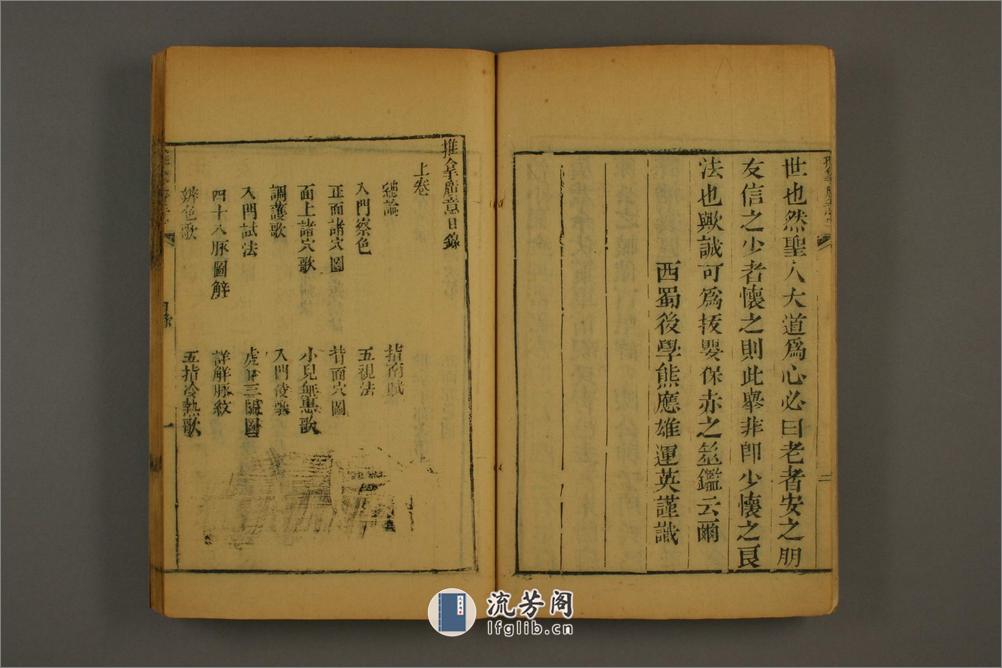 世也然聖人大道爲心必曰老者安之朋
友信之少者懷之則此舉非卽少懷之良
法也歟誠可爲拔嬰保赤之筮鑑云爾
西蜀後學熊應雄運英謹識
二
推拿廣意目錄
上卷
總論
指南賦
入門察色
五視法
正面諸穴圖
背面穴圖
面上諸穴歌
小兒無患歌
調護歌
入門
歌
入門試法
虎口三關圖
四十八脉圖解
詳解脉紋
辨色歌
五指冷熱歌
目錄
一
流芳阁
lfglib.cn